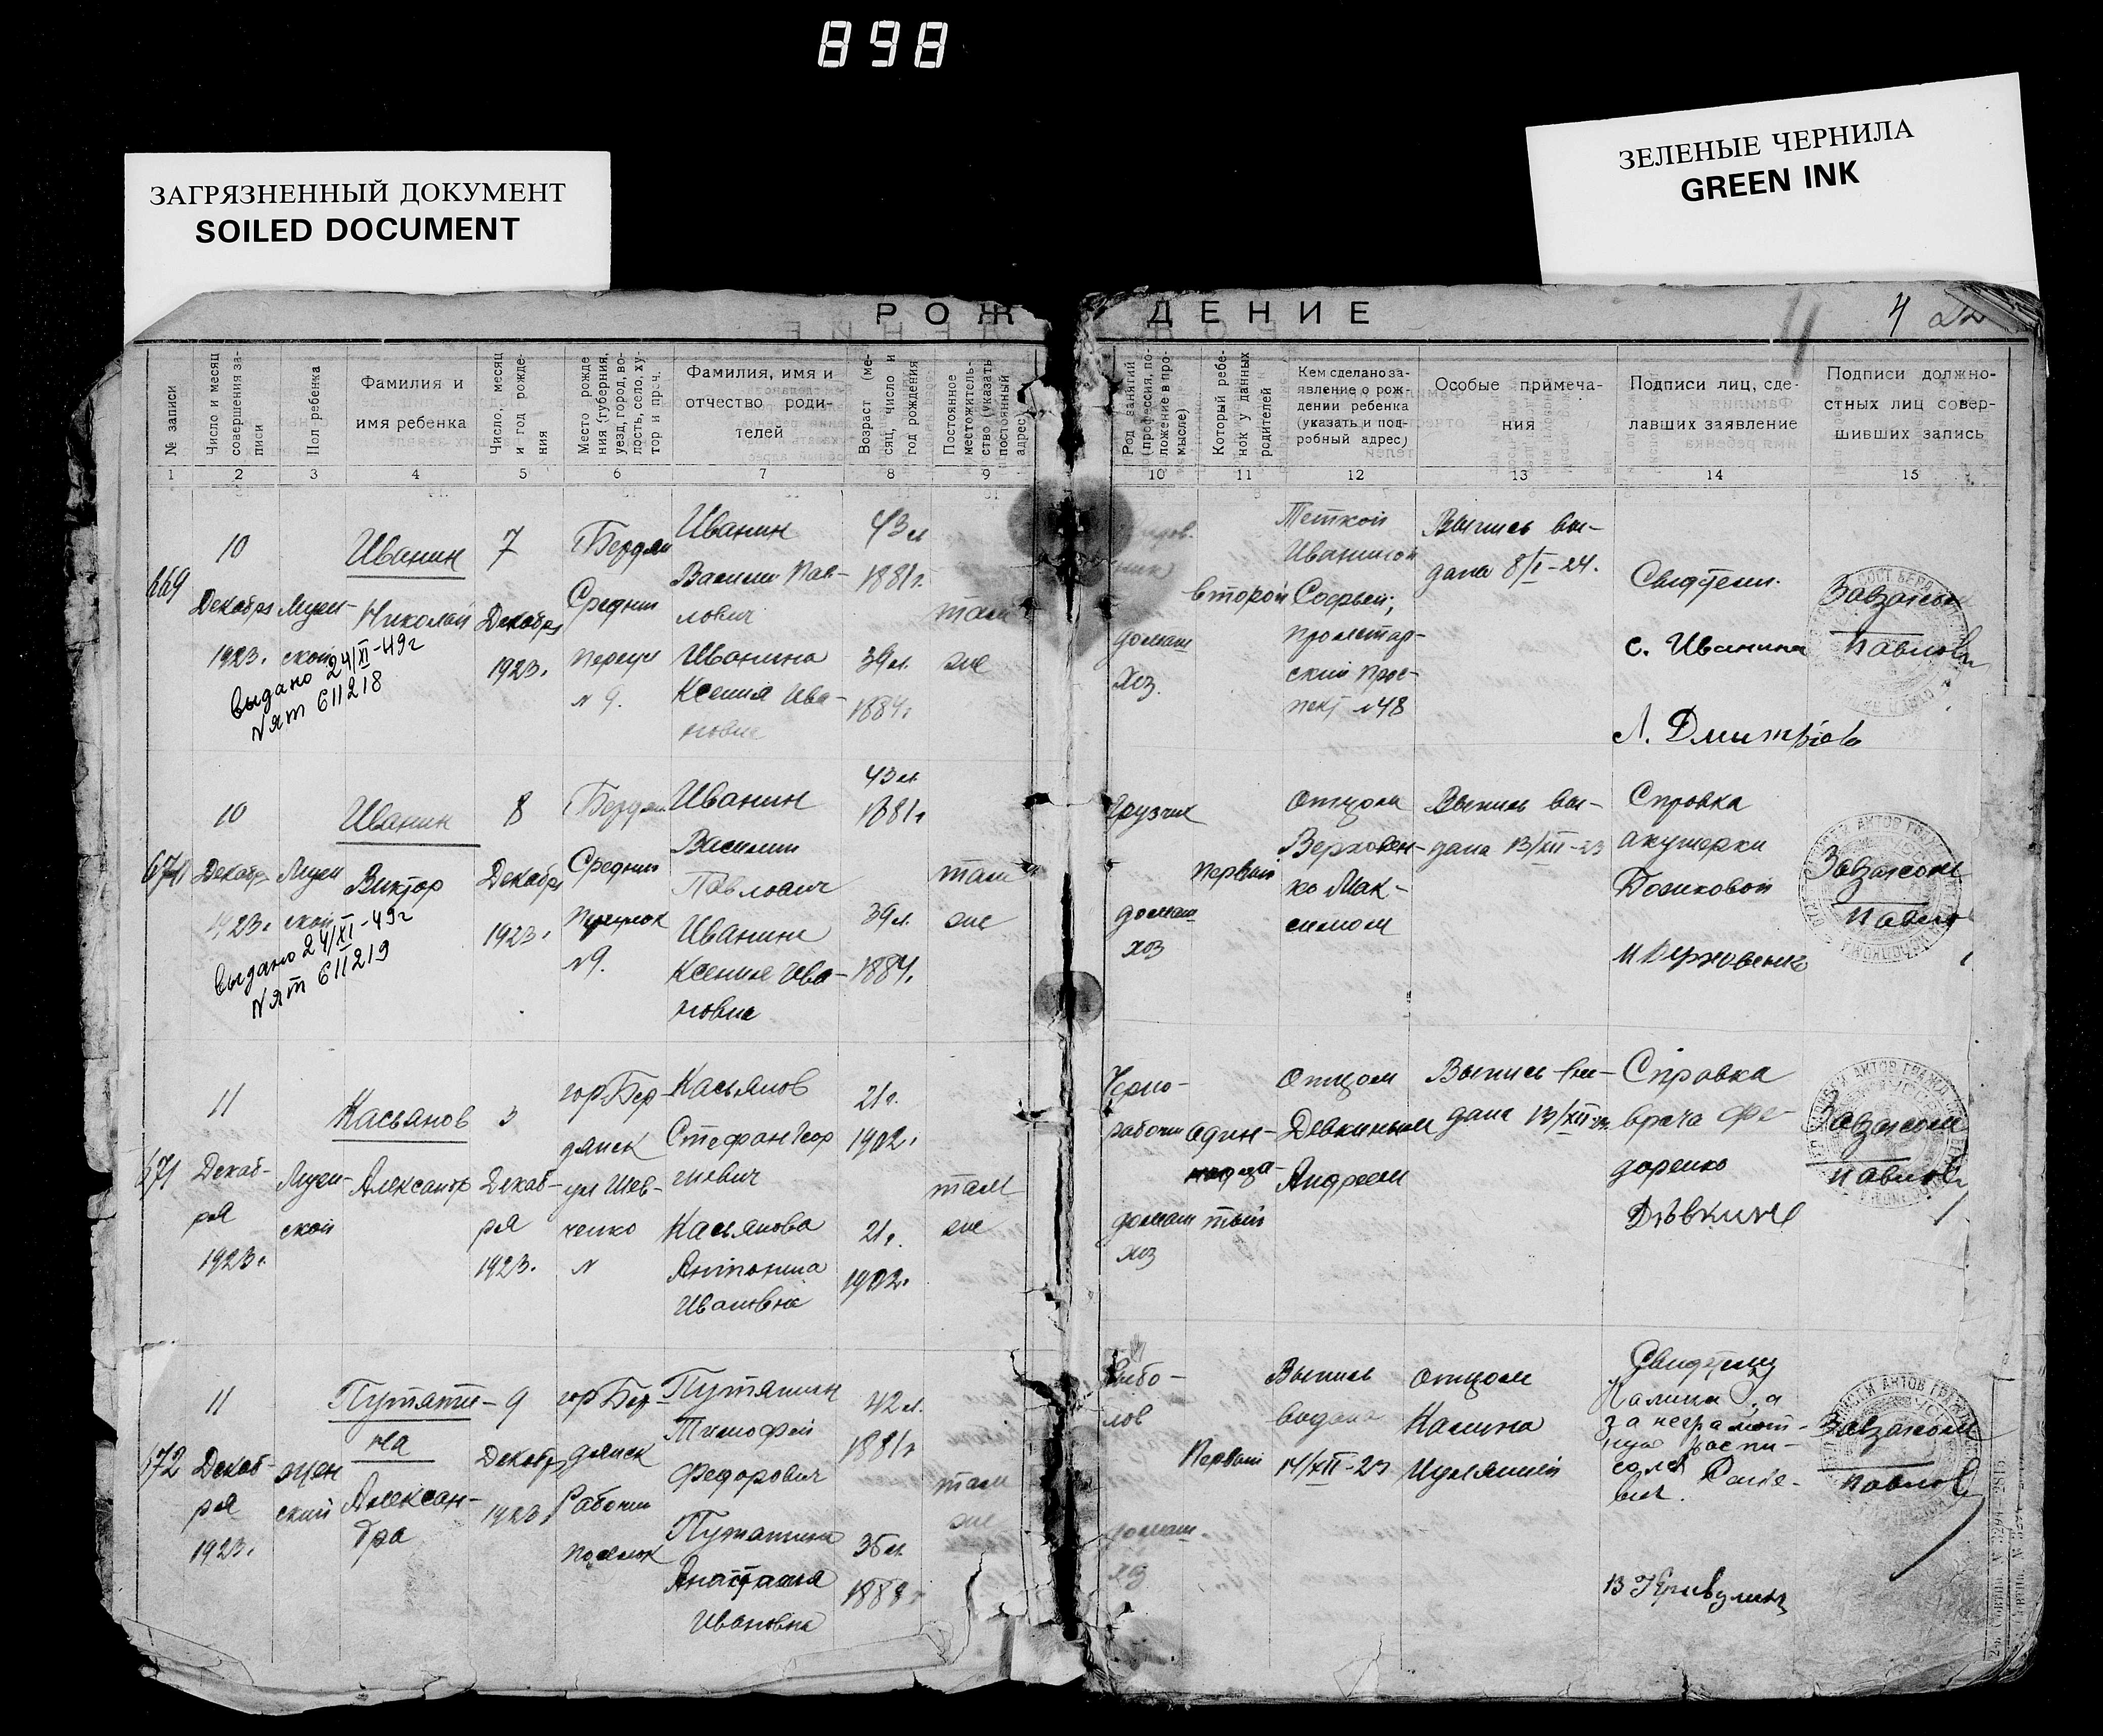 898
ЗАГРЯЗНЕННЫЙ ДОКУМЕНТ
SOILED DOCUMENT
ЗЕЛЕНЫЕ ЧЕРНИЛА
GREEN INK
РОЖДЕНИЕ
4
№ записи
Число и месяц совершения записи
Пол ребенка
Фамилия и
имя ребенка
Число, месяц и год рождения
Место рождения (губерния, уезд, город, волость, село, хутор и проч.
Фамилия, имя и
отчество роди-
телей
Возраст (месяц, число и год рождения
Постоянное местожительство (указать постоянный адрес)
Род занятий (профессия, положение в промысле)
Который ребенок у данных родителей
Кем сделано за-
явление о рож-
дении ребенка
(указать и под-
робный адрес)
Особые примеча-
ния
Подписи лиц, сде-
лавших заявление
Подписи должно-
стных лиц совер-
шивших запись
1 2 3 4 5 6 7 8 9 10 11 12 13 14 15
669
10
Декабря
1923.
Муж-
ской
Иванин
Николай
7
Декабря
1923.
г. Бердян
Средний
переул
№ 9.
Иванин
Василий Пав-
лович
Иванина
Ксения Ива-
новна
43 л
1881 г.
39 л.
1884 г
там
же
домаш
хоз.
второй
Теткой
Иваниной
Софьей,
пролетар-
ский прос-
пект №48
Выпись вы-
дана 8/I-24.
Свидетели.
С. Иванина
Л. Дмитріева
Завзагсом
Павлов
выдано 24/XI-49г
№ ЯТ 611218
670
10
Декабря
1923.
Муж
ской
Иванин
Виктор
8
Декабря
1923.
г. Бердян
Средний
переулок
№9.
Иванин
Василий
Павлович
Иванина
Ксения Ива-
новна
43 л.
1881 г
39 л.
1884.
там
же
Грузчик
домаш
хоз
первый
Отцом
Верховен-
ко Мак-
симом
Выпись вы-
дана 13/XII-23
Справка
акушерки
М Верховенко
Завзагсом
Павлов
выдано 24/XI-49г
№ ЯТ 611219
671
11
Декаб-
ря
1923.
Муж-
ской
Касьянов
Александр
3
Декаб-
ря
1923.
гор Бер-
дянск
ул Шев-
ченко
№
Касьянов
Стефан Геор
гиевич
Касьянова
Антонина
Ивановна
21 г.
1902.
21 г.
1902.
там
же
Черно-
рабочий
домаш
хоз
один-
надца-
тый
Отцом
Девкиным
Андреем
Выпись вы-
дана 13/XII-23
Справка
врача Фе-
доренко
Дѣвкинъ
Завзагсом
Павлов
672
11
Декаб-
ря
1923.
жен
ский
Путяти-
на
Алексан-
дра
9
Декабря
1923
гор Бер-
дянск
Рабочий
поселок
Путятин
Тимофей
Федорович
Путятина
Анастасия
Ивановна
42 л.
1881 г
35 л.
1888 г
там
же
Рыбо-
лов
домаш.
хоз
Первый
Выпись
выдана
14/XII-23
Отцом
Калина
Свидетели
Калина
за неграмот-
ную распи-
сался
Завзагсом
Павлов